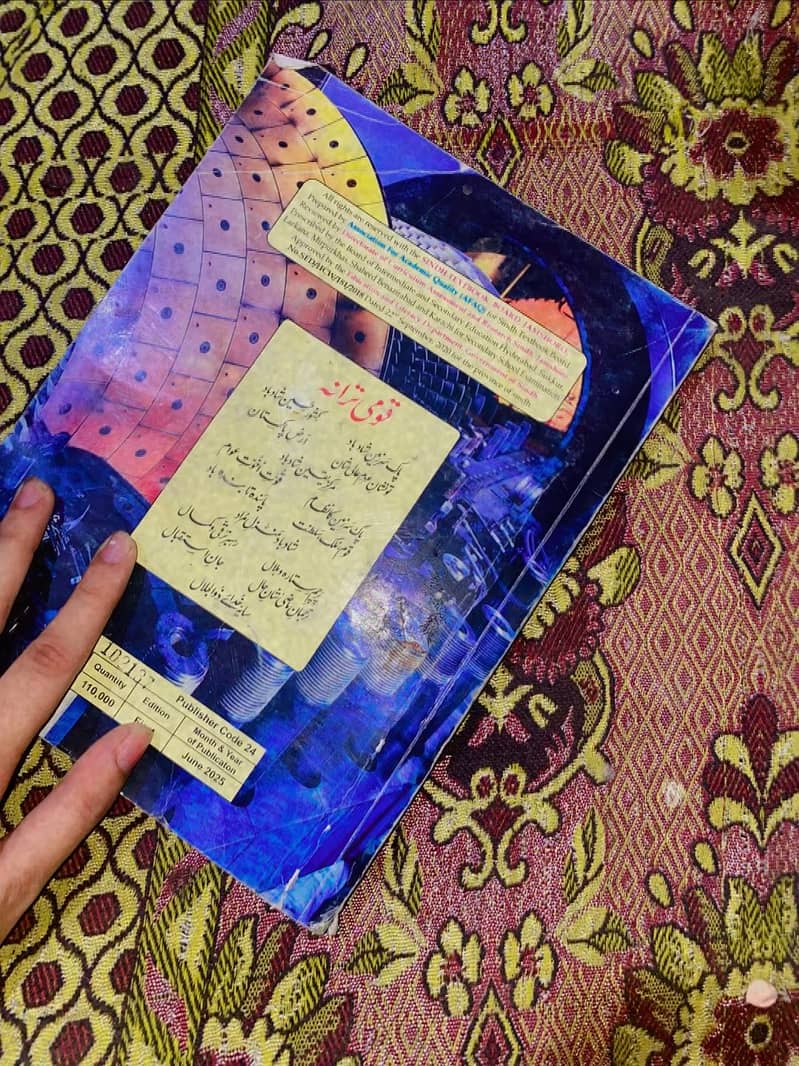 All rights are reserved with the SINDH TEXTBOOK BOARD, JAMSHORO.
Prepared by Association For Academic Quality (AFAQ) for Sindh Textbook Board
Reviewed by Directorate of Curriculum Assessment and Research Sindh, Jamshoro
Prescribed by the Board of Intermediate and Secondary Education Hyderabad, Sukkur,
Larkana, Mirpurkhas, Shaheed Benazirabad and Karachi for Secondary School Examination.
Approved by the Education and Literacy Department, Government of Sindh.
Dated 2nd September, 2020 for the province of sindh.
قومی ترانہ
پاک سرزمین شاد باد کشورِ حسین شاد باد
تو نشانِ عزمِ عالی شان ارضِ پاکستان
مرکزِ یقین شاد باد
پاک سرزمین کا نظام قوتِ اخوتِ عوام
قوم، ملک، سلطنت پائندہ تابندہ باد
شاد باد منزلِ مراد
پرچمِ ستارہ و ہلال رہبرِ ترقی و کمال
ترجمانِ ماضی شانِ حال جانِ استقبال
سایۂ خدائے ذوالجلال
Publisher Code 24
Quantity Edition Month & Year of Publicaton
110,000 June 2025